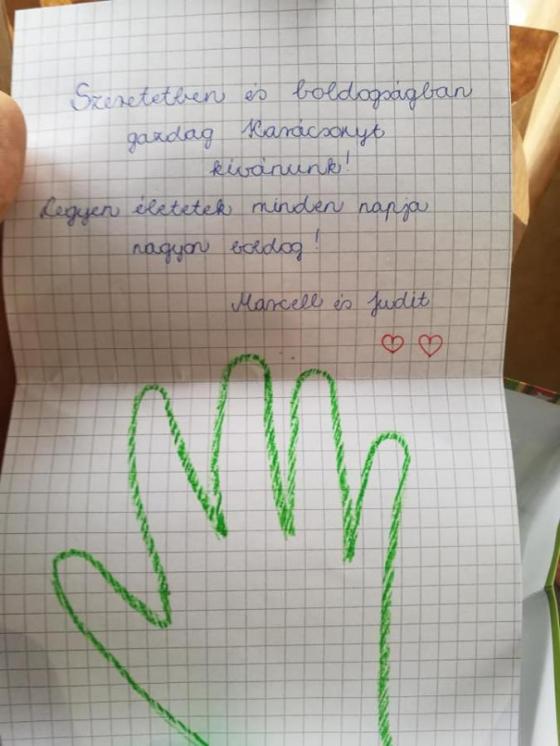 Szeretetben és boldogságban
gazdag Karácsonyt
kívánunk!
Legyen életetek minden napja
nagyon boldog!
Marcell és Judit